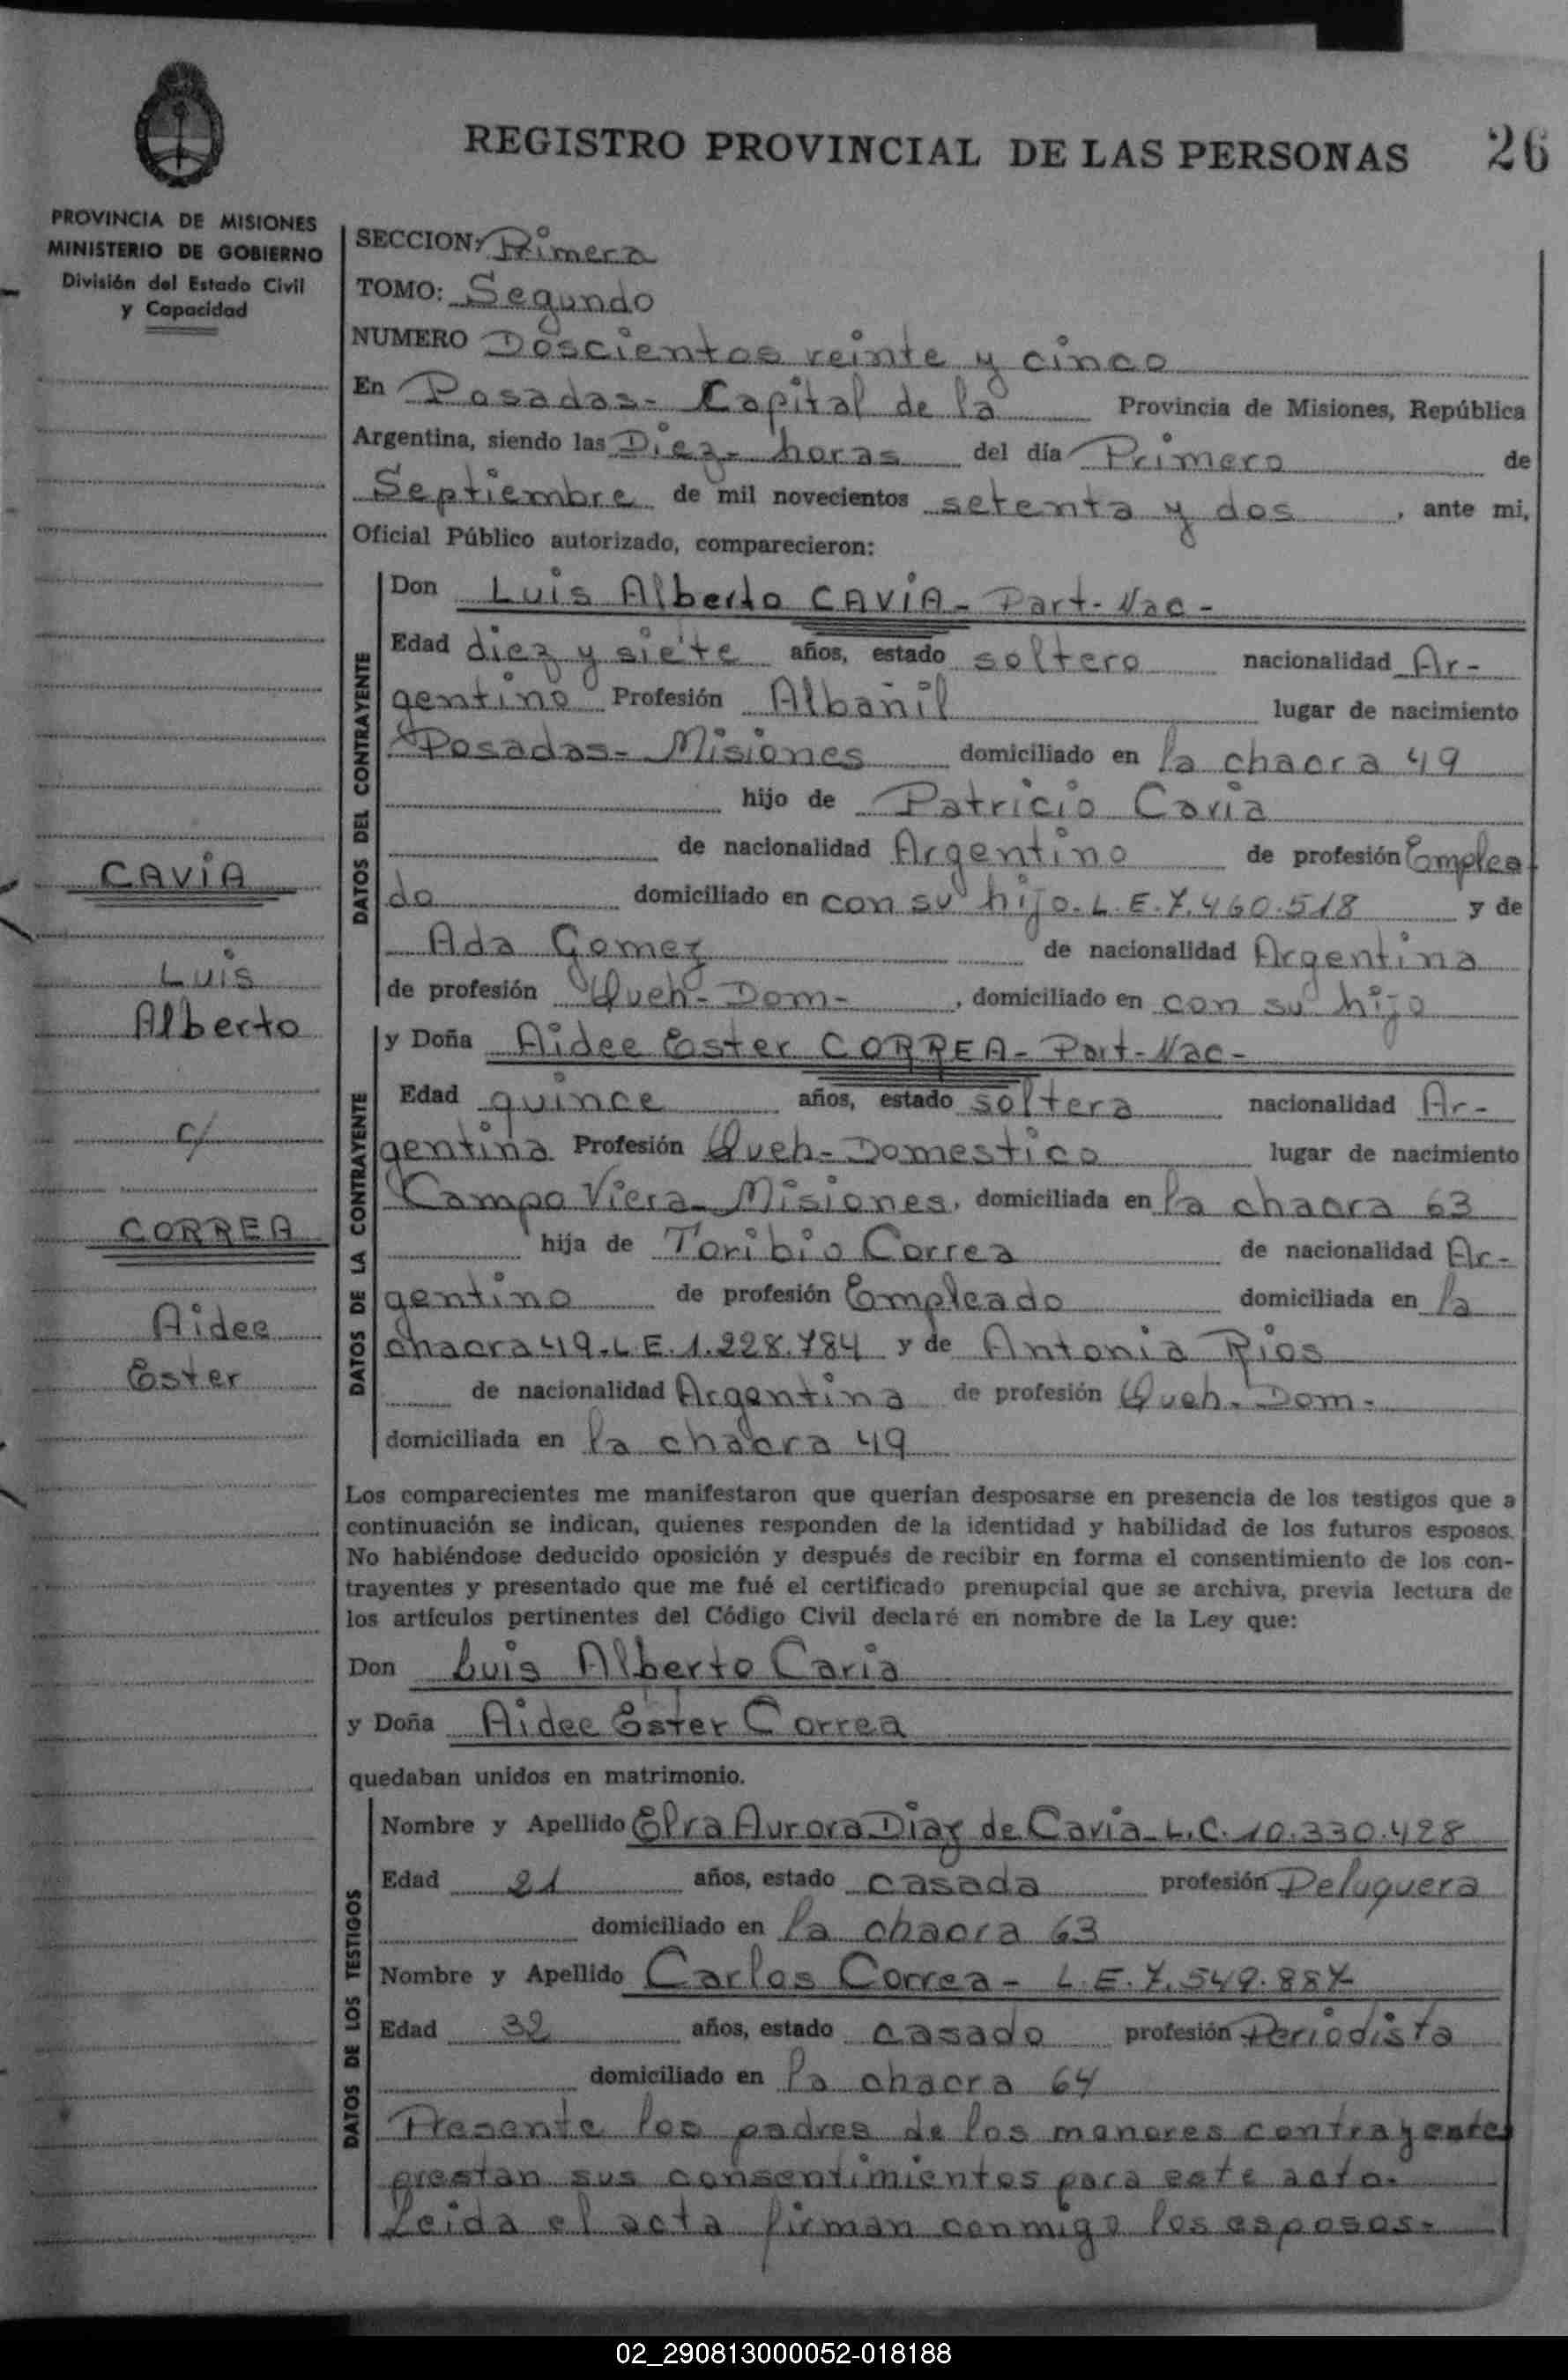 REGISTRO PROVINCIAL DE LAS PERSONAS 26
PROVINCIA DE MISIONES
MINISTERIO DE GOBIERNO
División del Estado Civil
y Capacidad
CAVIA
Luis
Alberto
c/
CORREA
Aidee
Ester
SECCION: Primera
TOMO: Segundo
NUMERO Doscientos veinte y cinco
En Posadas- Capital de la Provincia de Misiones, República
Argentina, siendo las Diez- horas del día Primero de
Septiembre de mil novecientos setenta y dos, ante mi,
Oficial Público autorizado, comparecieron:
DATOS DEL CONTRAYENTE
Don Luis Alberto CAVIA- Part- Nac-
Edad diez y siete años, estado soltero nacionalidad Ar-
gentino Profesión Albañil lugar de nacimiento
Posadas- Misiones domiciliado en la chacra 49
hijo de Patricio Cavia
de nacionalidad Argentino de profesión Emplea
do domiciliado en con su hijo. L.E. 7.460.518 y de
Ada Gomez de nacionalidad Argentina
de profesión Queh- Dom-, domiciliado en con su hijo
DATOS DE LA CONTRAYENTE
y Doña Aidee Ester CORREA- Part- Nac-
Edad quince años, estado soltera nacionalidad Ar-
gentina Profesión Queh- Domestico lugar de nacimiento
Campo Viera- Misiones, domiciliada en la chacra 63
hija de Toribio Correa de nacionalidad Ar-
gentino de profesión Empleado domiciliada en la
chacra 49- L.E. 1.228.784 y de Antonia Rios
de nacionalidad Argentina de profesión Queh- Dom-
domiciliada en la chacra 49
Los comparecientes me manifestaron que querían desposarse en presencia de los testigos que a
continuación se indican, quienes responden de la identidad y habilidad de los futuros esposos.
No habiéndose deducido oposición y después de recibir en forma el consentimiento de los con-
trayentes y presentado que me fué el certificado prenupcial que se archiva, previa lectura de
los artículos pertinentes del Código Civil declaré en nombre de la Ley que:
Don Luis Alberto Cavia
y Doña Aidee Ester Correa
quedaban unidos en matrimonio.
DATOS DE LOS TESTIGOS
Nombre y Apellido Elva Aurora Diaz de Cavia- L.C. 10.330.428
Edad 21 años, estado casada profesión Peluquera
domiciliado en la chacra 63
Nombre y Apellido Carlos Correa- L.E. 7.549.887
Edad 32 años, estado casado profesión Periodista
domiciliado en la chacra 64
Presente los padres de los menores contrayentes
prestan sus consentimientos para este acto.
Leida el acta firman conmigo los esposos-
02_290813000052-018188